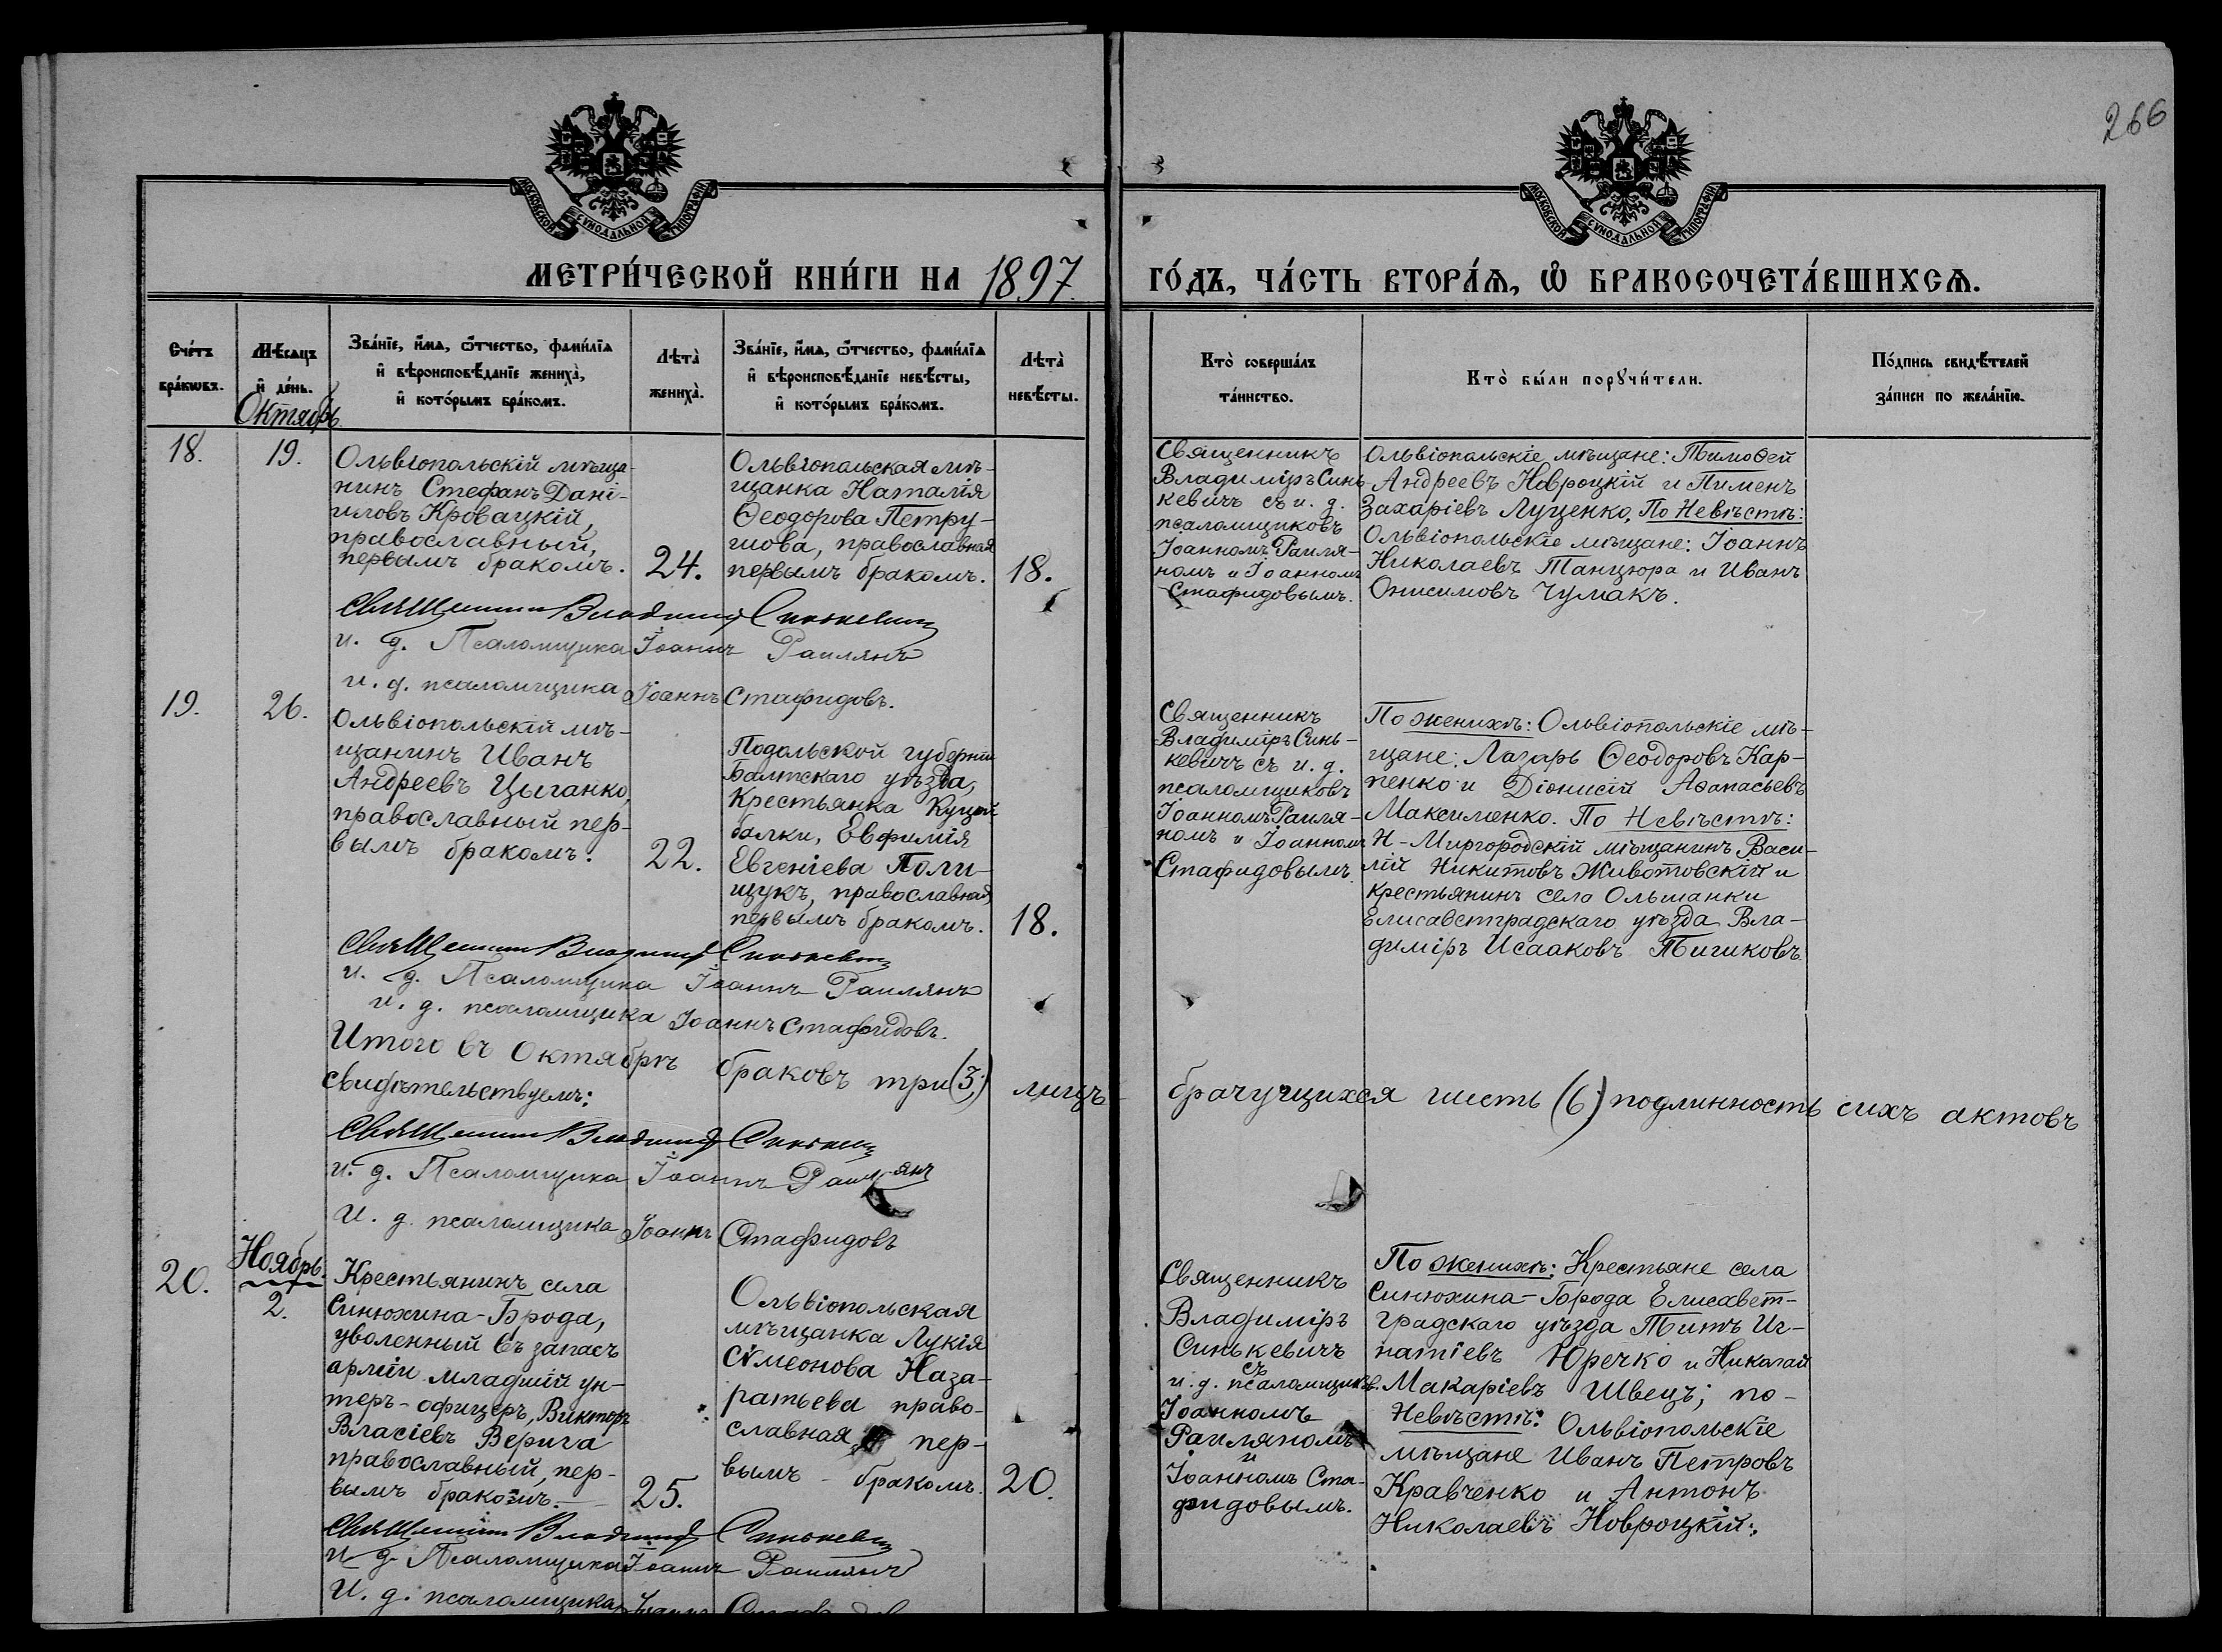 266
МОСКОВСКОЙ СУНОДАЛЬНОЙ ТИПОГРАФІИ
МОСКОВСКОЙ СУНОДАЛЬНОЙ ТИПОГРАФІИ
МЕТРИ́ЧЕСКОЙ КНИ́ГИ НА 1897
ГО́ДЪ, ЧА́СТЬ ВТОРА́Ѧ, Ѽ БРАКОСОЧЕТА́ВШИХСѦ.
Сче́тъ
бра́кѡвъ.
Мѣ́сяцъ
и҆ де́нь.
Зва́нїе, и҆́мя, ѻ҆́тчество, фами́лїя
и҆ вѣроисповѣ́данїе жениха̀,
и҆ кото́рымъ бра́комъ.
Лѣта̀
жениха̀.
Зва́нїе, и҆́мя, ѻ҆́тчество, фами́лїя
и҆ вѣроисповѣ́данїе невѣ́сты,
и҆ кото́рымъ бра́комъ.
Лѣта̀
невѣ́сты.
Кто̀ соверша́лъ
та́инство.
Кто̀ бы́ли порꙋчи́тели.
По́дпись свидѣ́телей
за́писи по жела́нїю.
Октябрь
18.
19.
Ольвіопольскій мѣща-
нинъ Стефанъ Дані-
иловъ Кровацкій,
православный,
первымъ бракомъ.
24.
Ольвіопольская мѣ-
щанка Наталія
Ѳеодорова Петру-
шова, православная
первымъ бракомъ.
18.
Священникъ
Владиміръ Синь
кевичъ съ и. д.
псаломщиковъ
Іоанномъ Раиля-
номъ и Іоанномъ
Стафидовымъ.
Ольвіопольскіе мѣщане: Тимоѳей
Андреевъ Новроцкій и Пименъ
Захаріевъ Луценко, По Невѣстѣ:
Ольвіопольскіе мѣщане: Іоаннъ
Николаевъ Танцюра и Иванъ
Онисимовъ Чумакъ.
Священникъ Владиміръ Синькевичъ
и. д. Псаломщика Іоаннъ Раилянъ
и. д. псаломщика Іоаннъ Стафидовъ.
19.
26.
Ольвіопольскій мѣ-
щанинъ Иванъ
Андреевъ Цыганко,
православный пер-
вымъ бракомъ.
22.
Подольской губерніи
Балтскаго уѣзда,
Крестьянка Куцой
балки, Евфимія
Евгеніева Поли-
щукъ, православная,
первымъ бракомъ.
18.
Священникъ
Владиміръ Синь-
кевичъ съ и. д.
псаломщиковъ
Іоанномъ Раиля-
номъ и Іоанномъ
Стафидовымъ.
По женихѣ: Ольвіопольскіе мѣ-
щане: Лазарь Ѳеодоровъ Кар-
пенко и Діонисій Аѳанасьевъ
Максименко. По Невѣстѣ:
Н.-Миргородскій мѣщанинъ Васи-
лій Никитовъ Животовскій и
крестьянинъ села Ольшанки
Елисаветградскаго уѣзда Вла-
диміръ Исааковъ Тигиковъ.
Священникъ Владиміръ Синькевичъ
и. д. Псаломщика Іоаннъ Раилянъ
и. д. псаломщика Іоаннъ Стафидовъ.
Итого въ Октябрѣ браковъ три (3) лицъ брачущихся шесть (6) подлинность сихъ актовъ
свидѣтельствуемъ:
Священникъ Владиміръ Синькевичъ
и. д. Псаломщика Іоаннъ Раилянъ
И. д. псаломщика Іоаннъ Стафидовъ
Ноябрь.
20.
2.
Крестьянинъ села
Синюхина-Брода,
уволенный въ запасъ
арміи младшій ун-
теръ-офицеръ, Викторъ
Власіевъ Верига
православный, пер-
вымъ бракомъ.
25.
Ольвіопольская
мѣщанка Лукія
Сѵмеонова Наза-
ратьева право-
славная, пер-
вымъ - бракомъ.
20.
Священникъ
Владиміръ
Синькевичъ
съ
и. д. псаломщиковъ.
Іоанномъ
Раиляномъ
и
Іоанномъ Ста-
фидовымъ.
По женихѣ: Крестьяне села
Синюхина-Брода Елисавет-
градскаго уѣзда Титъ Иг-
натіевъ Юречко и Николай
Макаріевъ Швецъ; по-
Невѣстѣ: Ольвіопольскіе
мѣщане Иванъ Петровъ
Кравченко и Антонъ
Николаевъ Новроцкій.
Священникъ Владиміръ Синькевичъ
и. д. Псаломщика Іоаннъ Раилянъ
И. д. псаломщика Іоаннъ